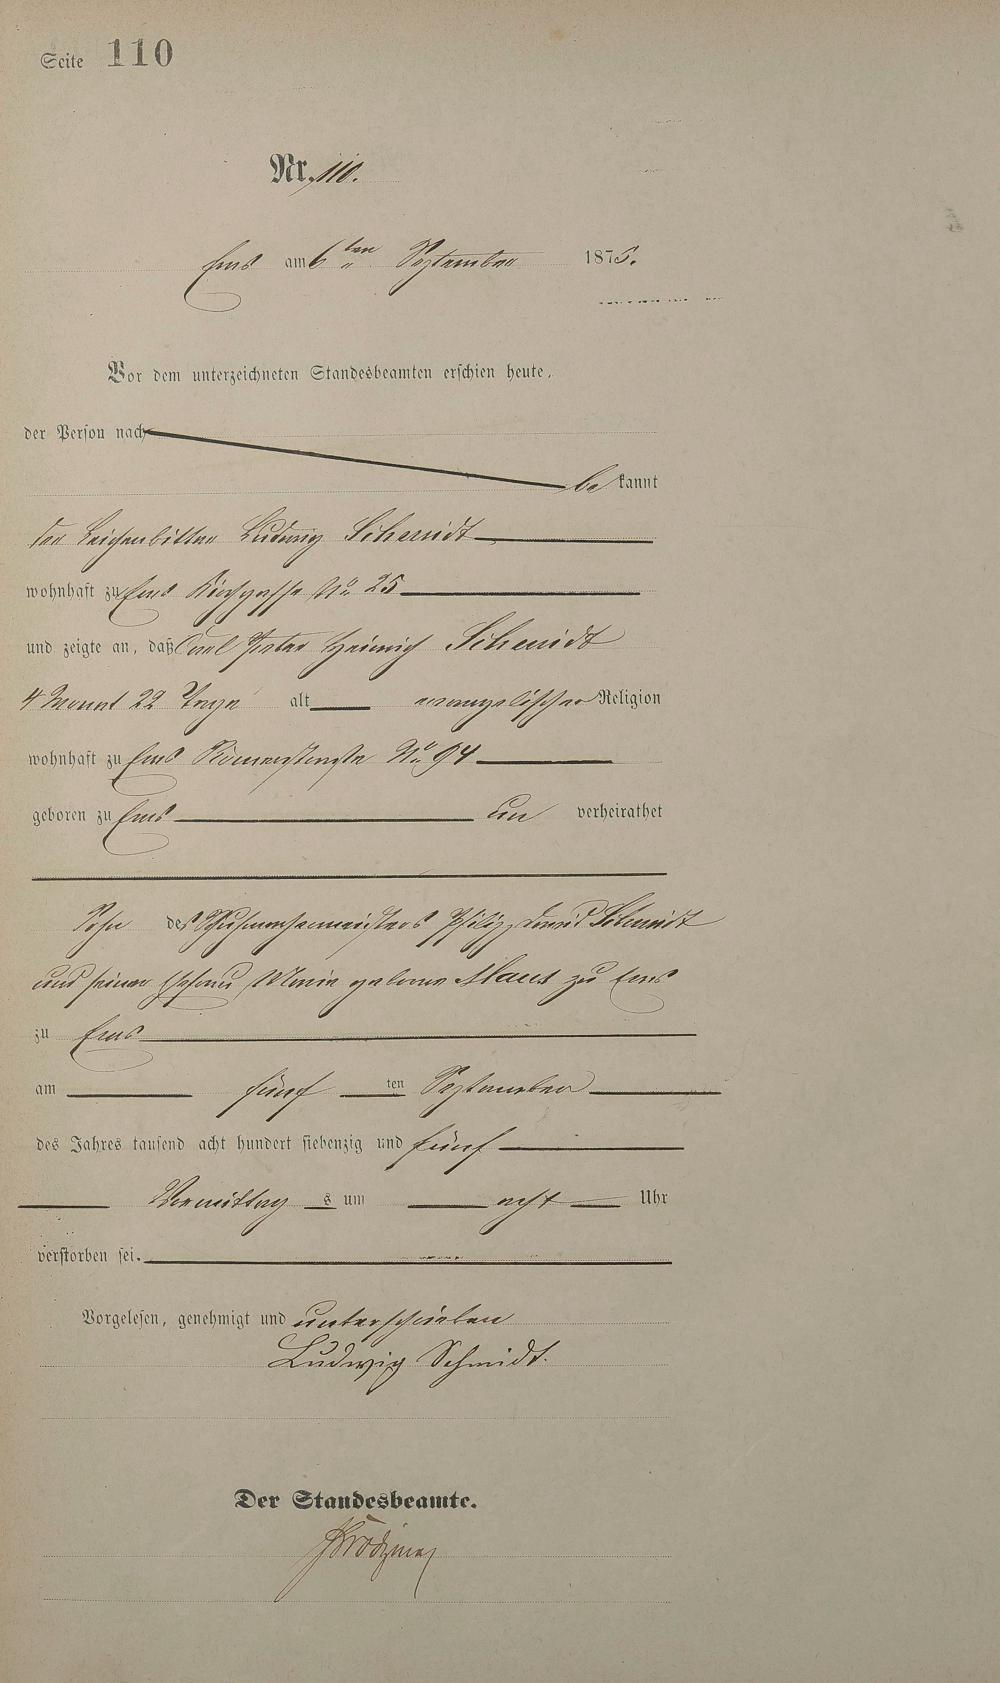 Seite 110
Nr. 110.
Ems am 6ten September 1875.
Vor dem unterzeichneten Standesbeamten erschien heute,
der Person nach
bekannt
der Leichenbitter Ludwig Schmidt
wohnhaft zu Ems Kirchgasse No 25
und zeigte an, daß Carl Peter Heinrich Schmidt
4 Monat 22 Tage alt evangelischer Religion
wohnhaft zu Ems Römerstraße No 94
geboren zu Ems un verheirathet
Sohn des Schuhmachermeisters Philipp David Schmidt
und seiner Ehefrau Marie geborne Maus zu Ems
zu Ems
am fünf ten September
des Jahres tausend acht hundert siebenzig und fünf
Vormittag s um acht Uhr
verstorben sei.
Vorgelesen, genehmigt und unterschrieben
Ludwig Schmidt.
Der Standesbeamte.